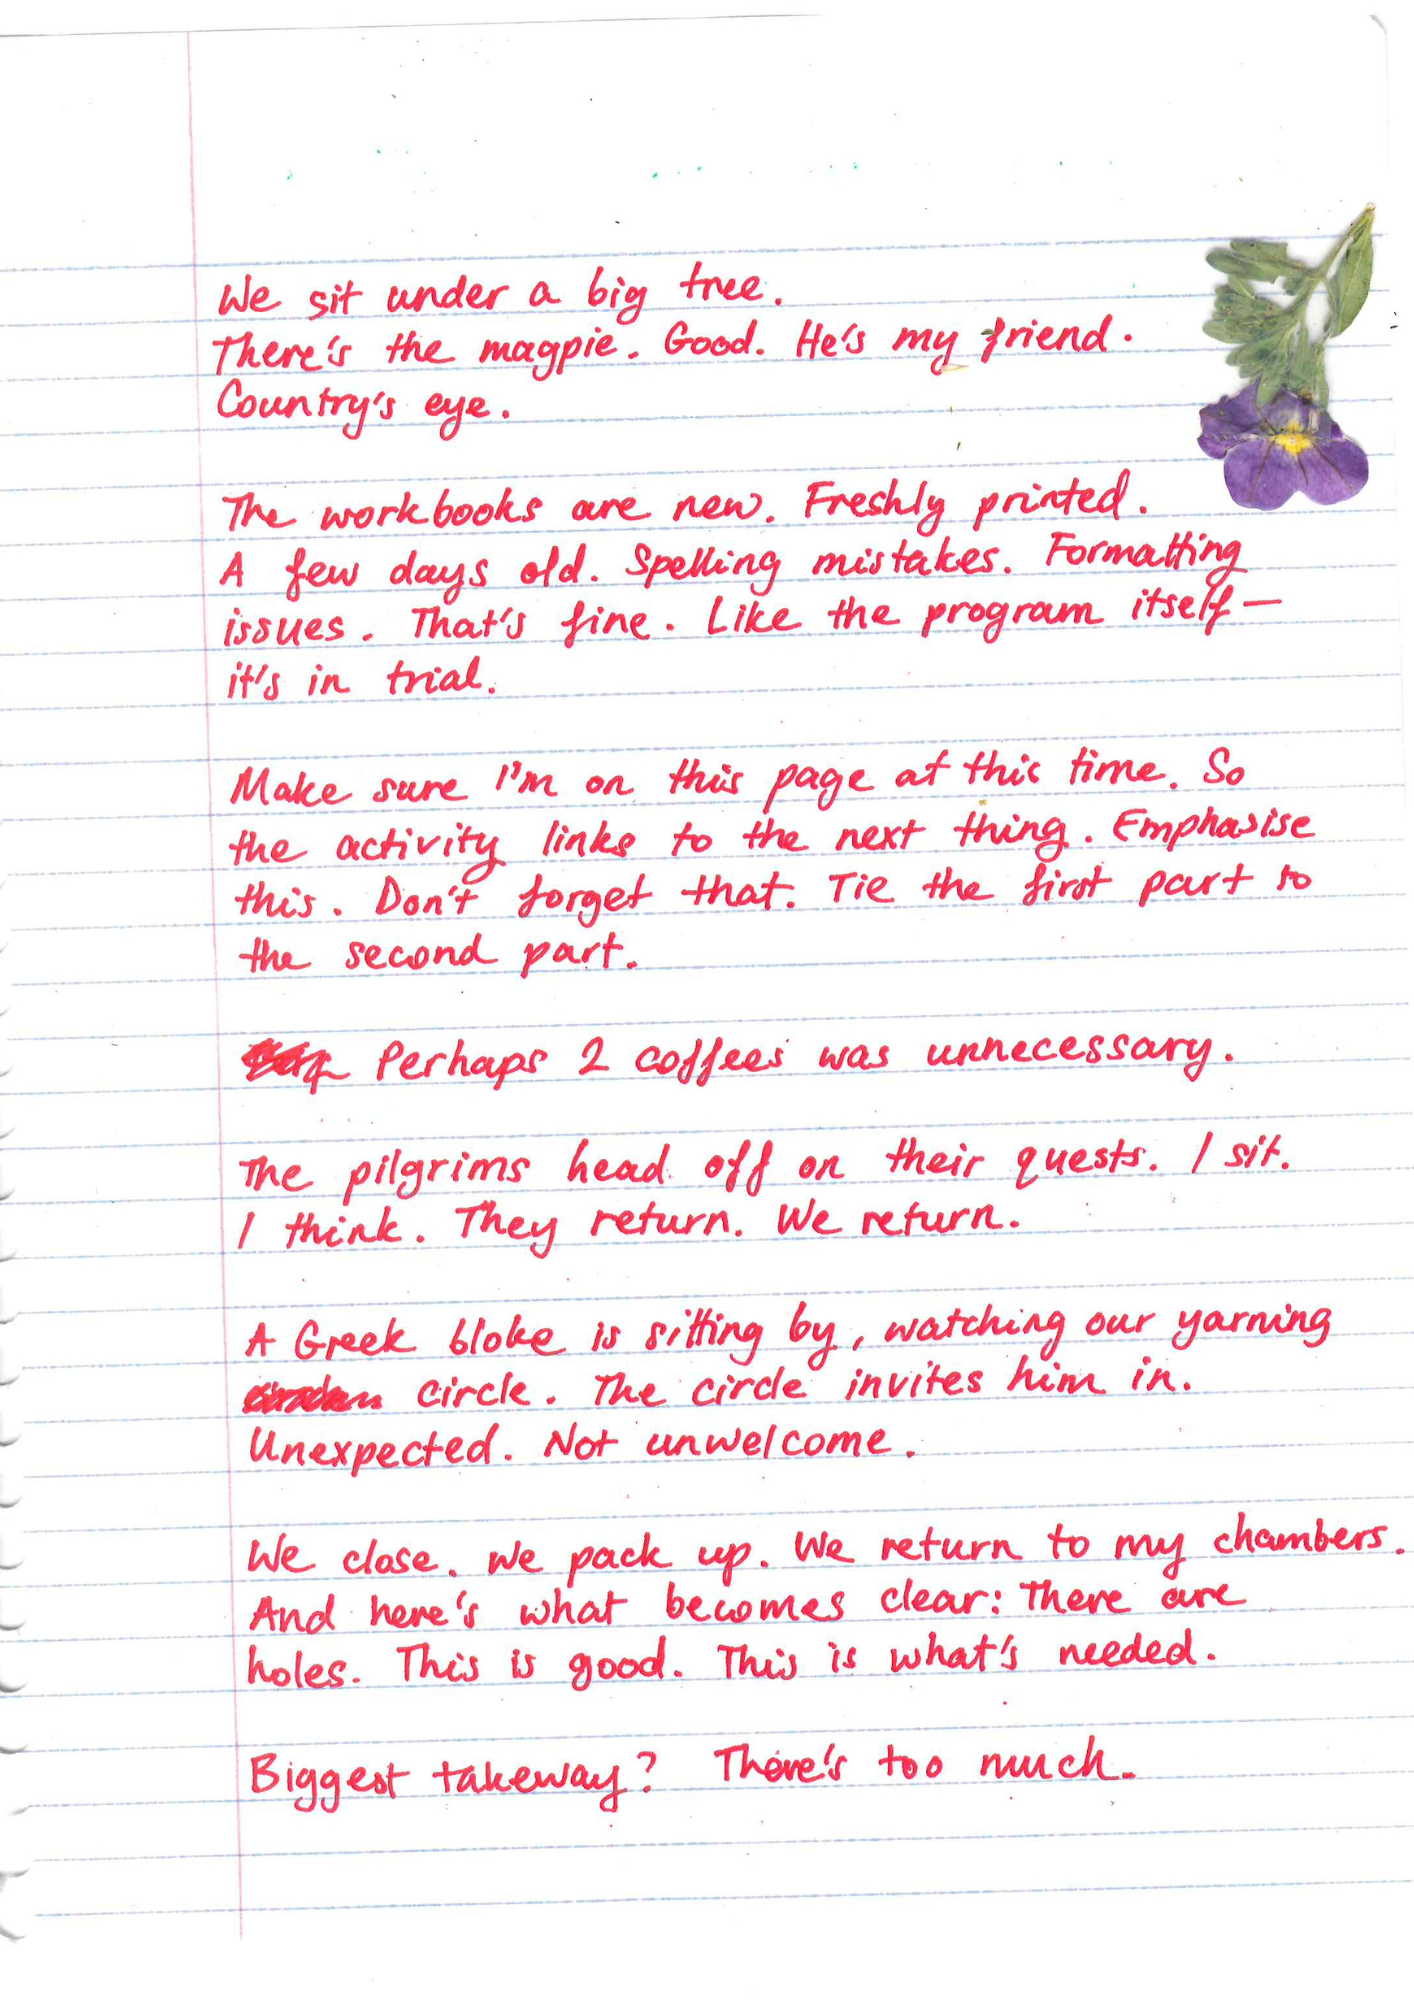 We sit under a big tree.
There's the magpie. Good. He's my friend.
Country's eye.
The workbooks are new. Freshly printed.
A few days old. Spelling mistakes. Formatting
issues. That's fine. Like the program itself—
it's in trial.
Make sure I'm on this page at this time. So
the activity links to the next thing. Emphasise
this. Don't forget that. Tie the first part to
the second part.
Perhaps 2 coffees was unnecessary.
The pilgrims head off on their quests. I sit.
I think. They return. We return.
A Greek bloke is sitting by, watching our yarning
circle. The circle invites him in.
Unexpected. Not unwelcome.
We close. We pack up. We return to my chambers.
And here's what becomes clear: There are
holes. This is good. This is what's needed.
Biggest takeway? There's too much.